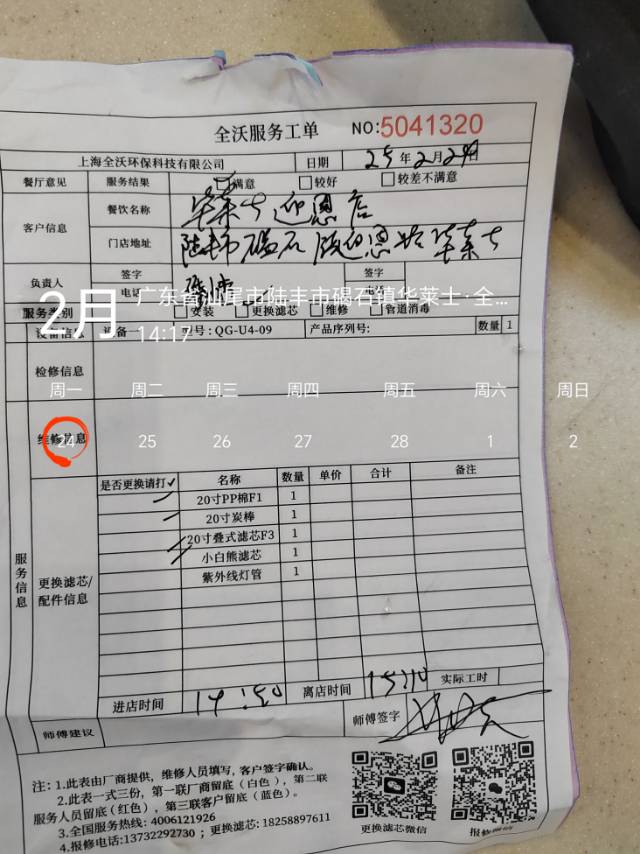 全沃服务工单 NO:5041320
上海全沃环保科技有限公司 日期 25年2月24日
餐厅意见 服务结果 满意 较好 较差不满意
客户信息 餐饮名称 华莱士迎恩店
门店地址 陆丰碣石 迎恩 华莱士
负责人 签字 签字
电话
2月 广东省汕尾市陆丰市碣石镇华莱士·全...
14:17
服务类别 安装 更换滤芯 维修 管道消毒
设备信息 设备一 型号:QG-U4-09 产品序列号: 数量 1
检修信息
周一 周二 周三 周四 周五 周六 周日
维修信息
24 25 26 27 28 1 2
服务信息
更换滤芯/配件信息
是否更换请打✓ 名称 数量 单价 合计 备注
✓ 20寸PP棉F1 1
✓ 20寸炭棒 1
✓ 20寸叠式滤芯F3 1
✓ 小白熊滤芯 1
紫外线灯管 1
进店时间 14:50 离店时间 15:10 实际工时
师傅建议 师傅签字
注: 1.此表由厂商提供, 维修人员填写, 客户签字确认。
2.此表一式三份, 第一联厂商留底(白色), 第二联
服务人员留底(红色), 第三联客户留底(蓝色)。
3.全国服务热线: 4006121926
4.报修电话:13732292730; 更换滤芯: 18258897611
更换滤芯微信 报修微信